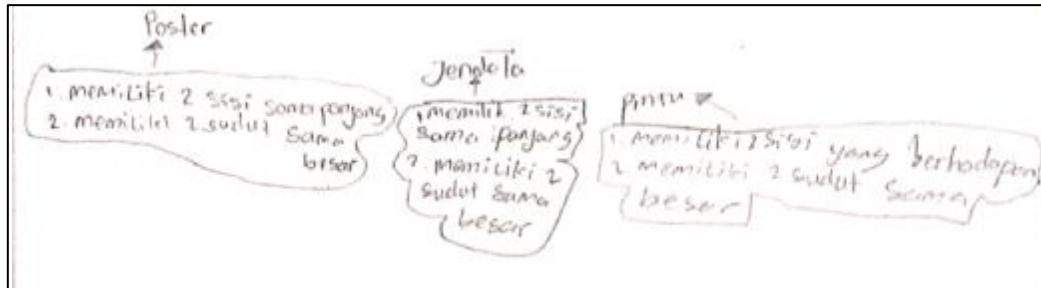 Poster
1. memiliki 2 sisi sama panjang
2. memiliki 2 sudut sama
besar
Jendela
1. memilik 2 sisi
sama panjang
2. memiliki 2
sudut sama
besar
pintu
1. memiliki 2 sisi yang berhadapan
2. memiliki 2 sudut sama
besar